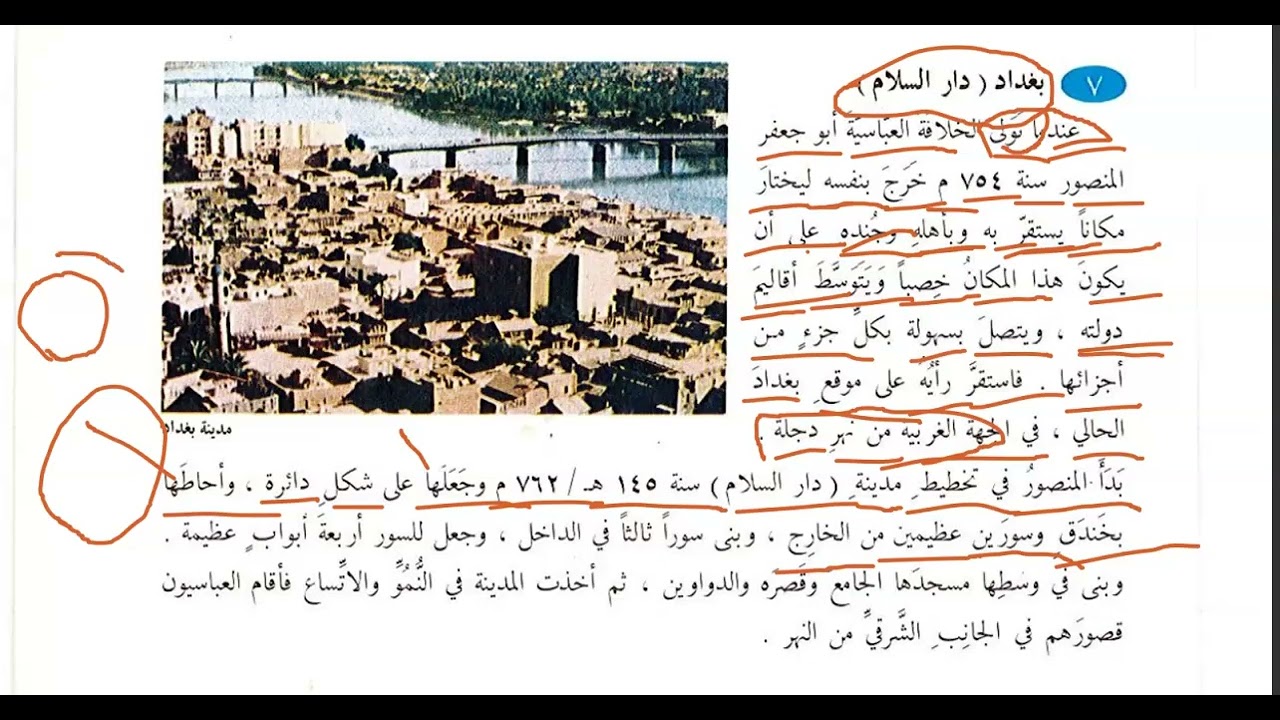 ٧ بغداد ( دار السلام )
عندما تَولى الخلافة العبّاسيّة أبو جعفر
المنصور سنة ٧٥٤ م خَرَجَ بنفسه ليختارَ
مكاناً يستقرّ به وبأهلهِ وجُنده على أن
يكونَ هذا المكانُ خِصباً وَيَتَوسَّطَ أقاليمَ
دولته ، ويتصلَ بسهولة بكلِّ جزءٍ من
أجزائها . فاستقرَّ رأيُهُ على موقعِ بغدادَ
الحالي ، في الجهة الغربية من نهرِ دجلة .
مدينة بغداد
بَدَأَ المنصورُ في تخطيطِ مدينةِ ( دار السلام ) سنة ١٤٥ هـ / ٧٦٢ م وجَعَلَها على شكلِ دائرة ، وأحاطَها
بخَندَق وسورَين عظيمين من الخارِج ، وبنى سوراً ثالثاً في الداخل ، وجعل للسور أربعةَ أبوابٍ عظيمة .
وبنى في وسَطِها مسجدَها الجامع وقَصرَه والدواوين ، ثم أخذت المدينة في النُّمُوِّ والاتِّساع فأقام العباسيون
قصورَهم في الجانِبِ الشَّرقيِّ من النهر .